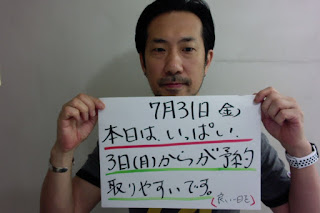 7月31日(金)
本日は、いっぱい、
3日(月)からが予約
取りやすいです。
【良い一日を】